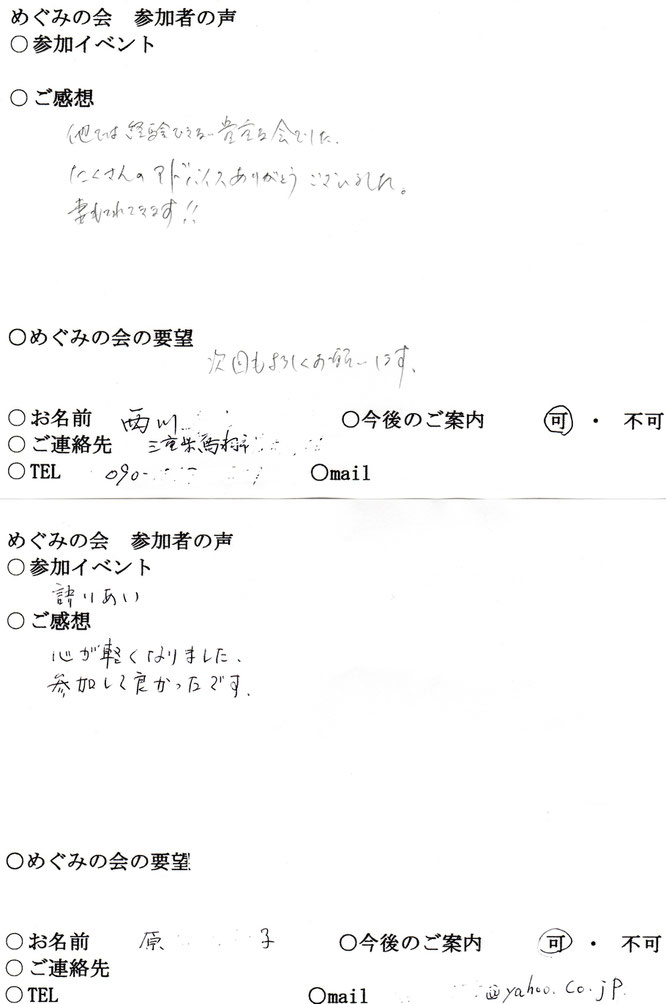 めぐみの会　参加者の声
○参加イベント
○ご感想
他では経験できない貴重な会でした.
たくさんのアドバイスありがとうございました。
妻もつれてきます!!
○めぐみの会の要望
次回もよろしくお願いします.
○お名前 西川 ○今後のご案内 可 ・ 不可
○ご連絡先 三重県
○TEL 090- ○mail
めぐみの会　参加者の声
○参加イベント
語りあい
○ご感想
心が軽くなりました.
参加して良かったです.
○めぐみの会の要望
○お名前 原 子 ○今後のご案内 可 ・ 不可
○ご連絡先
○TEL ○mail @yahoo.co.jp.